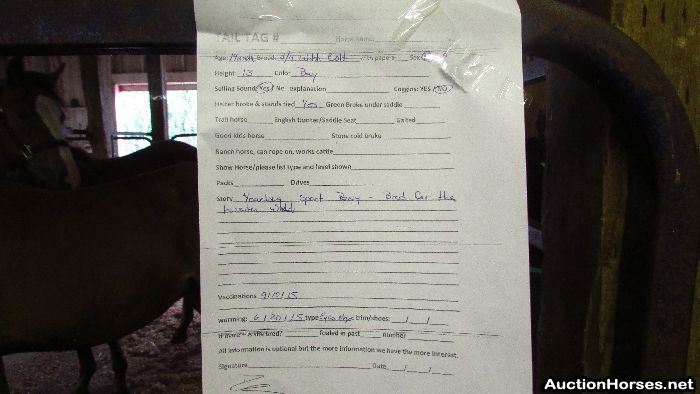 TAIL TAG # Horse Name
Age: Breed: with Colt with papers Sex
Height: 13 Color Bay
Selling Sound: Yes/ No explanation Coggins: YES /NO
Halter broke & stands tied Yes Green Broke under saddle
Trail horse English Hunter/Saddle Seat Gaited
Good kids horse Stone cold broke
Ranch horse, can rope on, works cattle
Show Horse/please list type and level shown
Packs Drives
Story Yearling Sport Pony - Bred for the
hunter
Vaccinations 9/12/15
Worming: 6/20/15 type trim/shoes: / /
If mare - is she bred? foaled in past number
All information is optional but the more information we have the more interest.
Signature Date / /
AuctionHorses.net